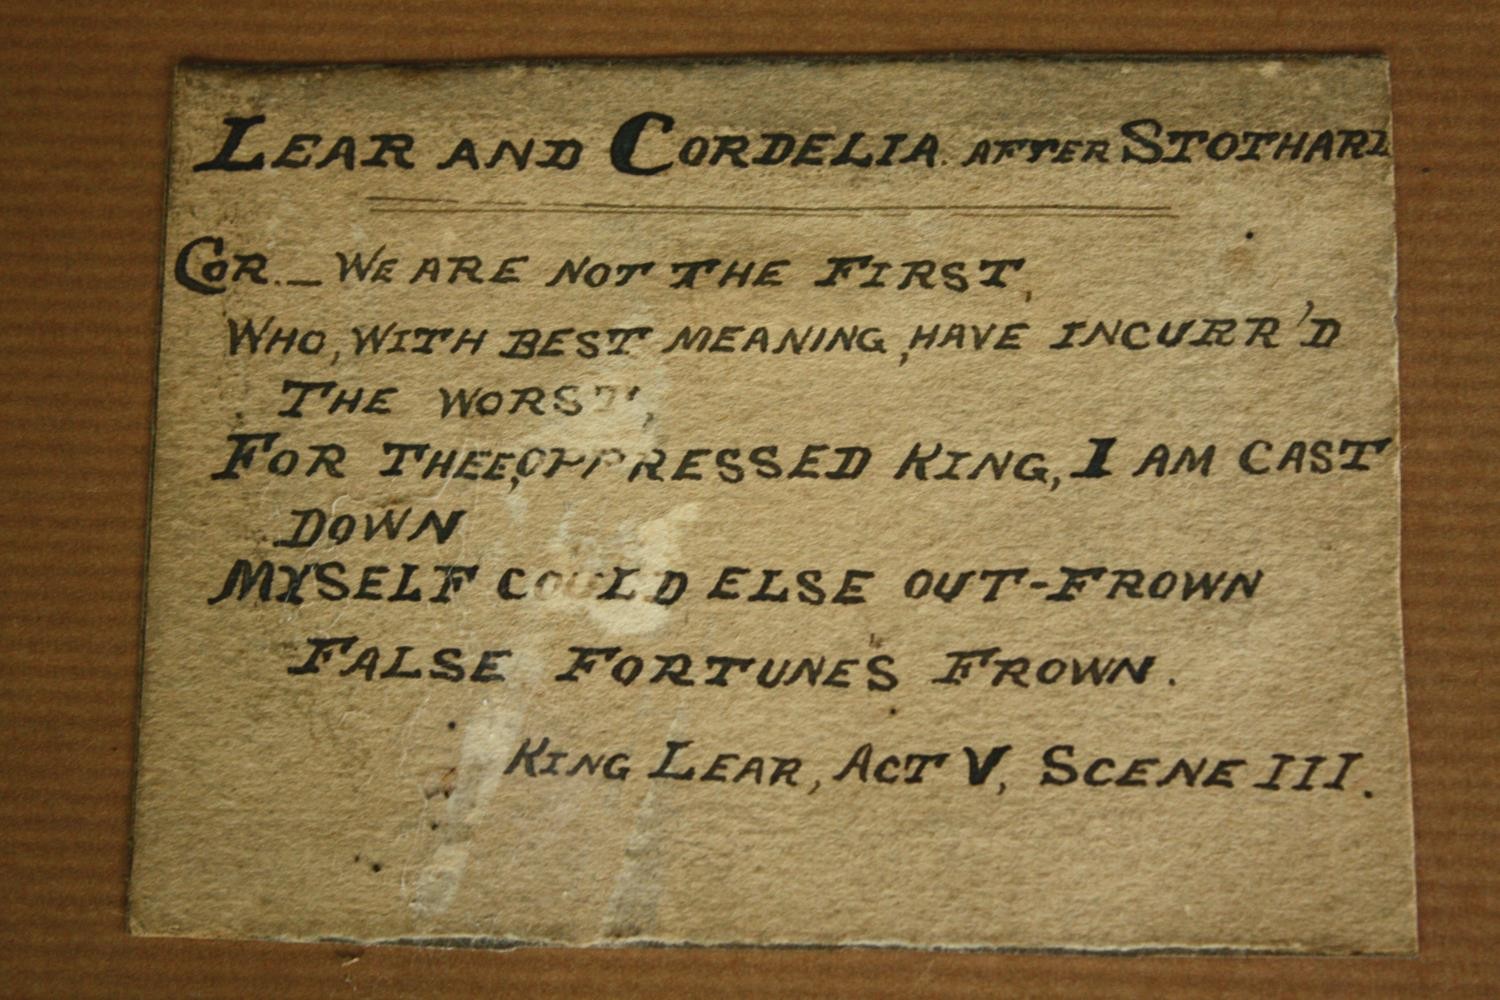 LEAR AND CORDELIA. AFTER STOTHARD
COR. — WE ARE NOT THE FIRST,
WHO, WITH BEST MEANING, HAVE INCURR'D
THE WORST,
FOR THEE, OPPRESSED KING, I AM CAST
DOWN
MYSELF COULD ELSE OUT-FROWN
FALSE FORTUNE'S FROWN.
KING LEAR, ACT V, SCENE III.